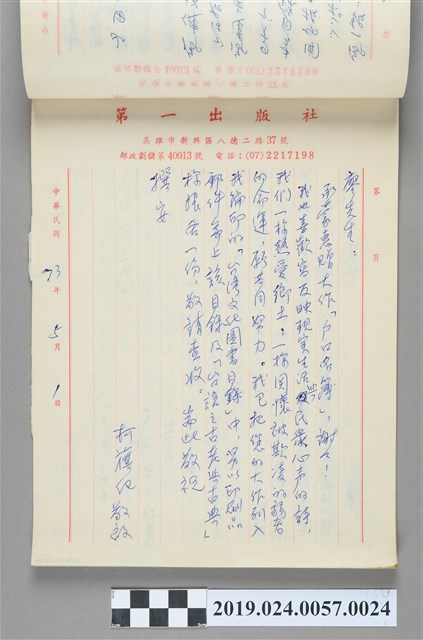 第一出版社
高雄市新興區八德二路37號
郵政劃撥第40013號 電話：(07)2217198
第 頁
廖先生：
承蒙惠贈大作「戶口名簿」，謝々！
我也喜歡寫反映現実生活與民衆心声的詩，
我們一樣熱愛鄉土；一樣関懷被欺凌的弱者
的命運，願共同努力。我已把您的大作列入
我編印的「台湾文化圖書目錄」中，另以印刷品
郵件寄上該目錄及「台語之古老與古典」
样張各一份，敬請查收。耑此敬祝
撰安
柯 敬啟
中華民國73年5月1日
2019.024.0057.0024
cm